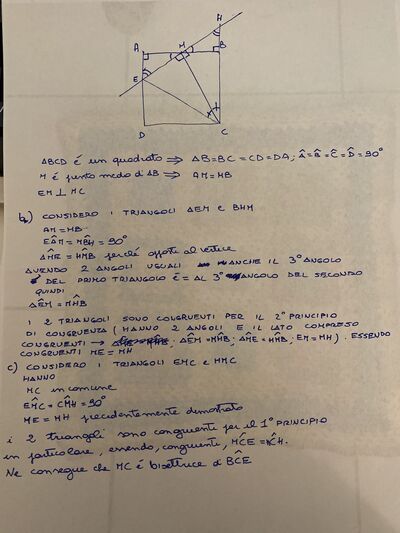 H
A
M
B
E
D
C
ABCD é un quadrato ⇒ AB=BC=CD=DA; Â=B̂=Ĉ=D̂=90°
M é punto medio di AB ⇒ AM=MB
EM ⊥ MC
b) CONSIDERO I TRIANGOLI AEM E BHM
AM=MB
EÂM = MB̂H = 90°
AM̂E = HM̂B perché opposti al vertice
AVENDO 2 ANGOLI UGUALI ANCHE IL 3° ANGOLO
DEL PRIMO TRIANGOLO É = AL 3° ANGOLO DEL SECONDO
QUINDI
AÊM = MĤB
I 2 TRIANGOLI SONO CONGRUENTI PER IL 2° PRINCIPIO
DI CONGRUENZA (HANNO 2 ANGOLI E IL LATO COMPRESO
CONGRUENTI → AÊM = MĤB; AM̂E = HM̂B; EM = MH). ESSENDO
CONGRUENTI ME = MH
c) CONSIDERO I TRIANGOLI EMC E HMC
HANNO
MC in comune
EM̂C = CM̂H = 90°
ME = MH precedentemente dimostrato
i 2 triangoli sono congruenti per il 1° PRINCIPIO
in particolare, essendo, congruenti, MĈE = ĈH.
Ne consegue che MC é bisettrice di BĈE